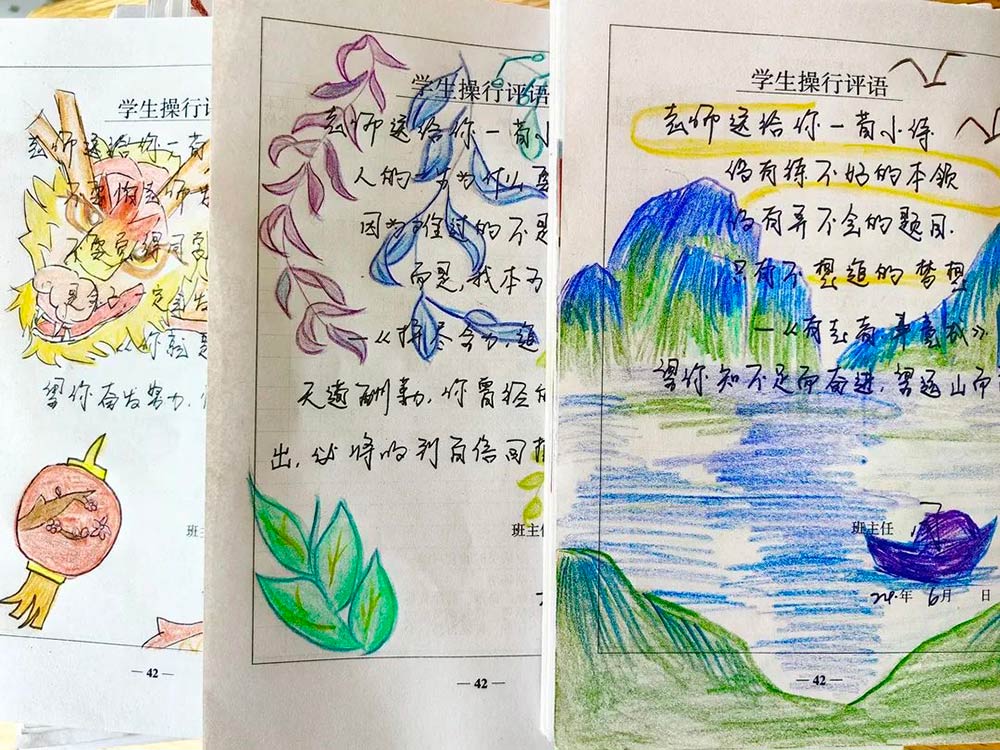 学生操行评
老师送给你一首
不要
不要觉得同
是金子,定会发
《你就是
望你奋发努力,
班
— 42 —
学生操行评语
老师送给你一首小
人的一生为什么要
因为难过的不是
而是,我本可
—《拼尽全力 追
天道酬勤,你曾经的
出,必将收到百倍回报
班主任
— 42 —
学生操行评语
老师送给你一首小诗
没有练不好的本领
没有弄不会的题目.
只有不想追的梦想
—《有志者 事竟成》
望你知不足而奋进,望远山而
班主任
24年 6月 日
— 42 —